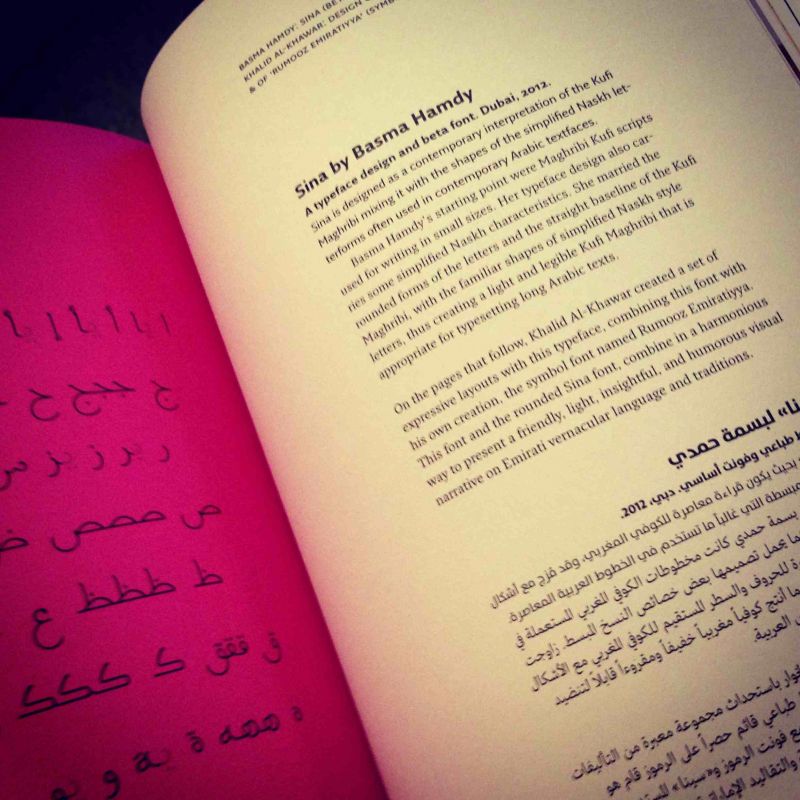 BASMA HAMDY: SINA (BE
KHALID AL-KHAWAR: DESIGN
& OF 'RUMOOZ EMIRATIYYA' (SYMB
Sina by Basma Hamdy
A typeface design and beta font. Dubai, 2012.
Sina is designed as a contemporary interpretation of the Kufi
Maghribi mixing it with the shapes of the simplified Naskh let-
terforms often used in contemporary Arabic textfaces.
Basma Hamdy's starting point were Maghribi Kufi scripts
used for writing in small sizes. Her typeface design also car-
ries some simplified Naskh characteristics. She married the
rounded forms of the letters and the straight baseline of the Kufi
Maghribi, with the familiar shapes of simplified Naskh style
letters, thus creating a light and legible Kufi Maghribi that is
appropriate for typesetting long Arabic texts.
On the pages that follow, Khalid Al-Khawar created a set of
expressive layouts with this typeface, combining this font with
his own creation, the symbol font named Rumooz Emiratiyya.
This font and the rounded Sina font, combine in a harmonious
way to present a friendly, light, insightful, and humorous visual
narrative on Emirati vernacular language and traditions.
لبسمة حمدي
طباعي وفونت أساسي. دبي، 2012.
بحيث يكون قراءة معاصرة للكوفي المغربي، وقد مزج مع أشكال
المبسطة التي غالباً ما تستخدم في الخطوط العربية المعاصرة.
بسمة حمدي كانت مخطوطات الكوفي المغربي المستعملة في
كما يحمل تصميمها بعض خصائص النسخ المبسط. زاوجت
للحروف والسطر المستقيم للكوفي المغربي مع الأشكال
أنتج كوفياً مغربياً خفيفاً ومقروءاً قابلاً لتنضيد
العربية.
باستحداث مجموعة معبرة من التأليفات
طباعي قائم حصراً على الرموز قام هو
فونت الرموز و«سينا»
والتقاليد
ح ححح ج
ر بر ز بز س
ص صصص ض
ط ططظ ظ ع
ق ققق ك ككك
ه ههه ة بة و بو